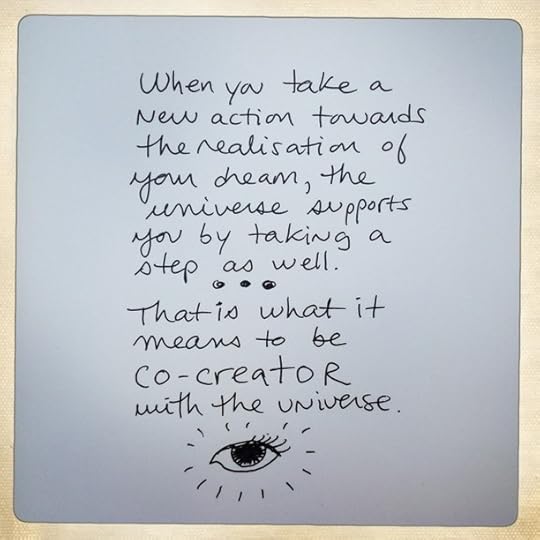 When you take a
new action towards
the realisation of
your dream, the
universe supports
you by taking a
step as well.
That is what it
means to be
co-creatoR
with the universe.